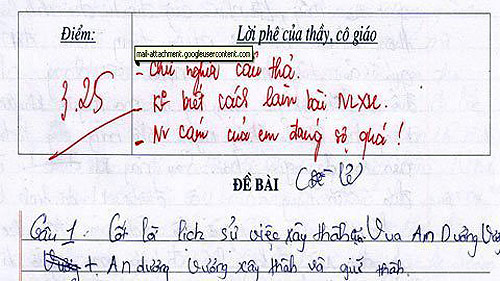 Điểm:
Lời phê của thầy, cô giáo
mail-attachment.googleusercontent.com
3.25
- Chữ nghĩa cẩu thả.
- K° biết cách làm bài NLXH.
- Nr cảm của em đáng sợ quá!
ĐỀ BÀI (Đề lẻ)
Câu 1: Cốt lõi lịch sử việc xây thành của Vua An Dương
+ An dương Vương xây thành và giữ thành.